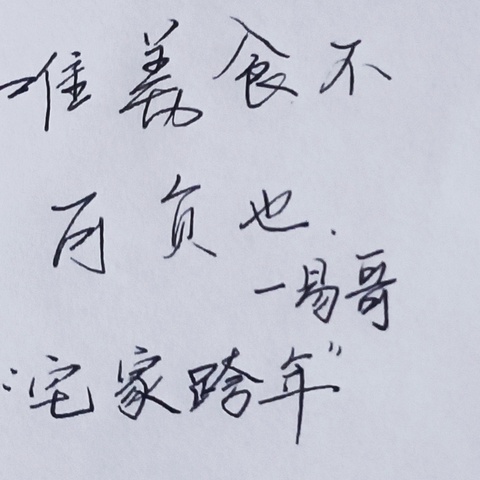 唯美食不
可负也.
一易哥
:宅家跨年"